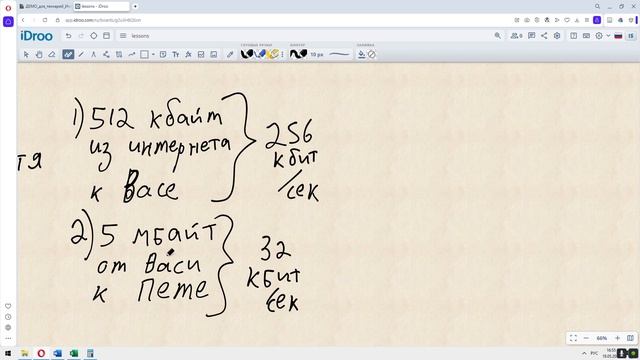 lessons
app.idroo.com
iDroo
lessons
10 px
1) 512 кбайт
из интернета
к Васе
256
кбит
/сек
тя
2) 5 мбайт
от Васи
к Пете
32
кбит
/сек
66%
РУС
16:55